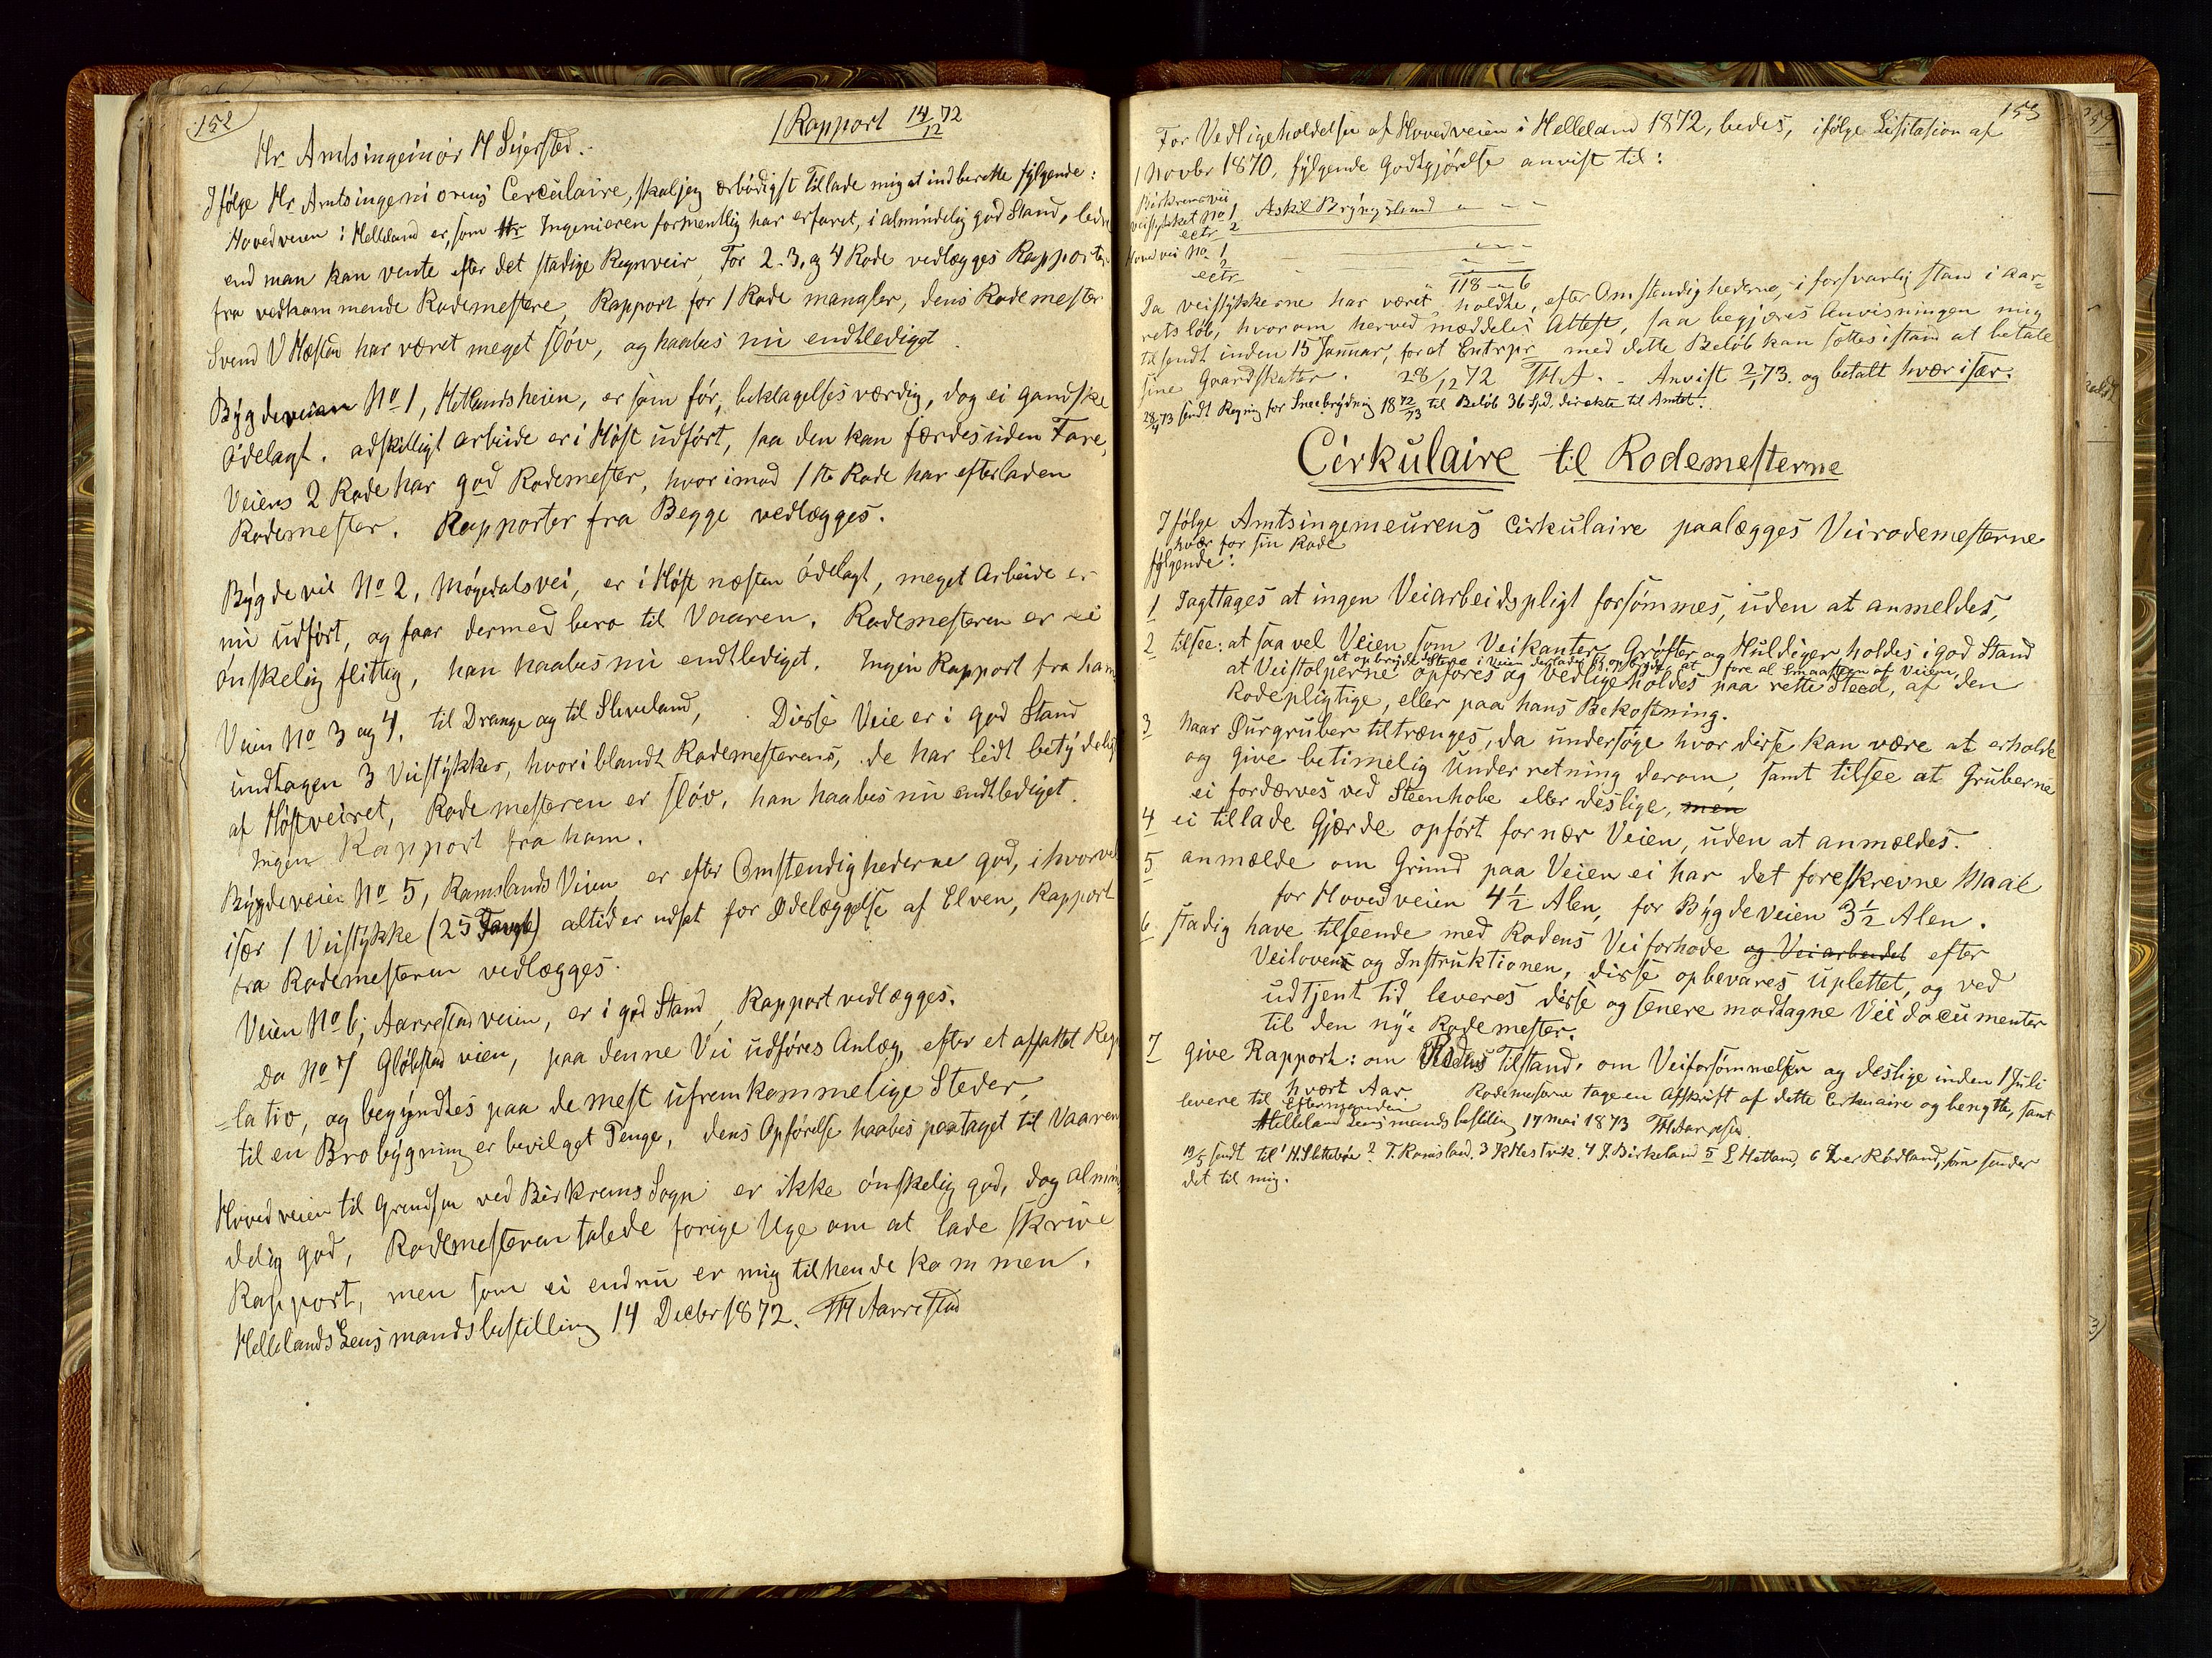 152
/Rapport 14/12 72
Hr Amtsingeniör H Sejersted.
Ifölge Hr Amtsingeniörens Cerculaire, skal jeg ærbödigst tillade mig at indberette fýlgende:
Hovedveien i Helleland er, som Hr Ingeniören formentlig har erfaret, i almindelig god Stand, bedre
end man kan vente efter det stadige Regnveir, For 2. 3. og 4 Rode vedlægges Rapporter
fra vedkommende Rodemestere, Rapport for 1 Rode mangler, dens Rodemester
Svend V Hæstad har været meget slöv, og haabes nu endtlediget.
Býgdeveien No 1, Hetlandsheien, er som för, beklagelsesværdig, dog ei gandske
ödelagt. adskilligt arbeide er i Höst udfört, saa den kan færdes uden Fare,
Veiens 2 Rode har god Rodemester, hvorimod 1ste Rode har efterladen
Rodemester. Rapporter fra Begge vedlægges.
Býgdevei No 2, Mögedalsvei, er i Höst næsten ödelagt, meget Arbeide er
nu udfört, og faar dermed bero til Vaaren. Rodemesteren er ei
önskelig flittig, han haabes nu endtlediget. Ingen Rapport fra ham
Veien No 3 og 4, til Drange og til Sleveland, Disse Veie er i god Stand
undtagen 3 Veistýkker, hvoriblandt Rodemesterens, de har lidt betýdelig
af Höstveiret, Rodemesteren er slöv, han haabes nu endtlediget.
Ingen Rapport fra ham.
Býgdeveien No 5, Ramslands Veien er efter Omstendighederne god, ihvorvel
især 1 Veistýkke (25 Favne) altid er udsat for Ødelæggelse af Elven, Rapport
fra Rodemesteren vedlægges.
Veien No 6, Aarrestadveien, er i god Stand, Rapport vedlægges.
Do No 7 Glöbstad veien, paa denne Vei udföres Anlæg, efter et affattet Regu
=lativ, og begýndtes paa de mest ufremkommelige Steder,
til en Brobýgning er bevilget Penge, dens Opförelse haabes paataget til Vaaren
Hovedveien til Grendsen ved Birkrems Sogn er ikke önskelig god, dog almin
delig god, Rodemesteren talede forige Uge om at lade skrive
Rapport, men som ei endnu er mig tilhende kommen.
Hellelands Lensmandsbestilling 14 Decbr 1872. TH Aarrestad
153
For Vedligeholdelsen af Hovedveien i Helleland 1872, bedes, ifölge Lisitasion af
1 Novbr 1870, fýlgende Godtgjörelse anvist til:
Birkremsvei
veistykket No 1 Askil Brýnjsland " — " —
ectr 2
Hovedvei No 1 " — " —
2
ectr
118 — 6
Da veistýkkerne har været holdte, efter Omstendighederne, i forsvarlig stand i Aar=
rets löb, hvorom herved meddeles Attest, saa begjæres Anvisningen mig
tilsendt inden 15 Januar, for at Entrpr med dette Beløb kan sættes istand at betale
sine Gaardskatter. 28/12 72 TH A. - Anvist 2/1 73. og betalt hvær især.
28/4 73 sendt Regning for Sneebrýdning 1872/73 til Beløb 36 Spd. direkte til Amtet.
Cirkulaire til Rodemesterne
Ifölge Amtsingenieurens Cirkulaire paalægges Veirodemesterne
hvær for sin Rode
fýlgende:
1 Iagttages at ingen Veiarbeidspligt forsömmes, uden at anmeldes,
2 tilsee: at saa vel Veien som Veikanter, Gröfter og Huldiger holdes i god Stand
at Veistolperne opföres og vedligeholdes paa rette Steed, af den
Rodepligtige, eller paa hans Bekostning.
3 Naar Øurgruber tiltrænges, da undersöge hvor disse kan være at erholde
og give betimelig Underretning derom, samt tilsee at Gruberne
ei fordærves ved Steenhobe eller deslige, men
4 ei tillade Gjærde opfört for nær Veien, uden at anmældes.
5 anmælde om Grind paa Veien ei har det foreskrevne Maal
for Hovedveien 4½ Alen, for BýgdeVeien 3½ Alen.
6 stadig have tilseende med Rodens Veiforhode og Veiarbeidet efter
Veiloven og Instruktionen, disse opbevares uplettet, og ved
udtjent tid leveres disse og senere modtagne Veidocumenter
til den nýe Rodemester.
7 give Rapport: om Rodens Tilstand, om Veiforsömmelser og deslige inden 1 Juli
hvært Aar. Rodemestere tage en Afskrift af dette Cirkulaire og benytte, samt
levere til Eftermanden
Helleland Lensmandsbestilling 17 Mai 1873 TH Aarrestad
19/5 sendt til 1 H. Slettebøe 2 T. Ramsland. 3 K Hestvik. 4 J. Birkeland 5 L Hetland, 6 Iver Rödland, som sender
det til mig.